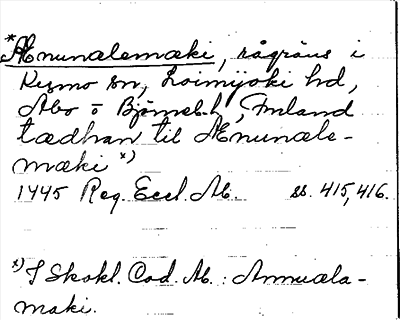 *Ænunælemæki, rågräns i
Rezmo sn, Loimijoki hd,
Åbo o Björneb. l., Finland
tædhan til Ænunæle-
mæki x)
1445 Reg. Eccl. Ab. ss. 415, 416.
x) I Skokl. Cod. Ab.: Annuæla-
maki.